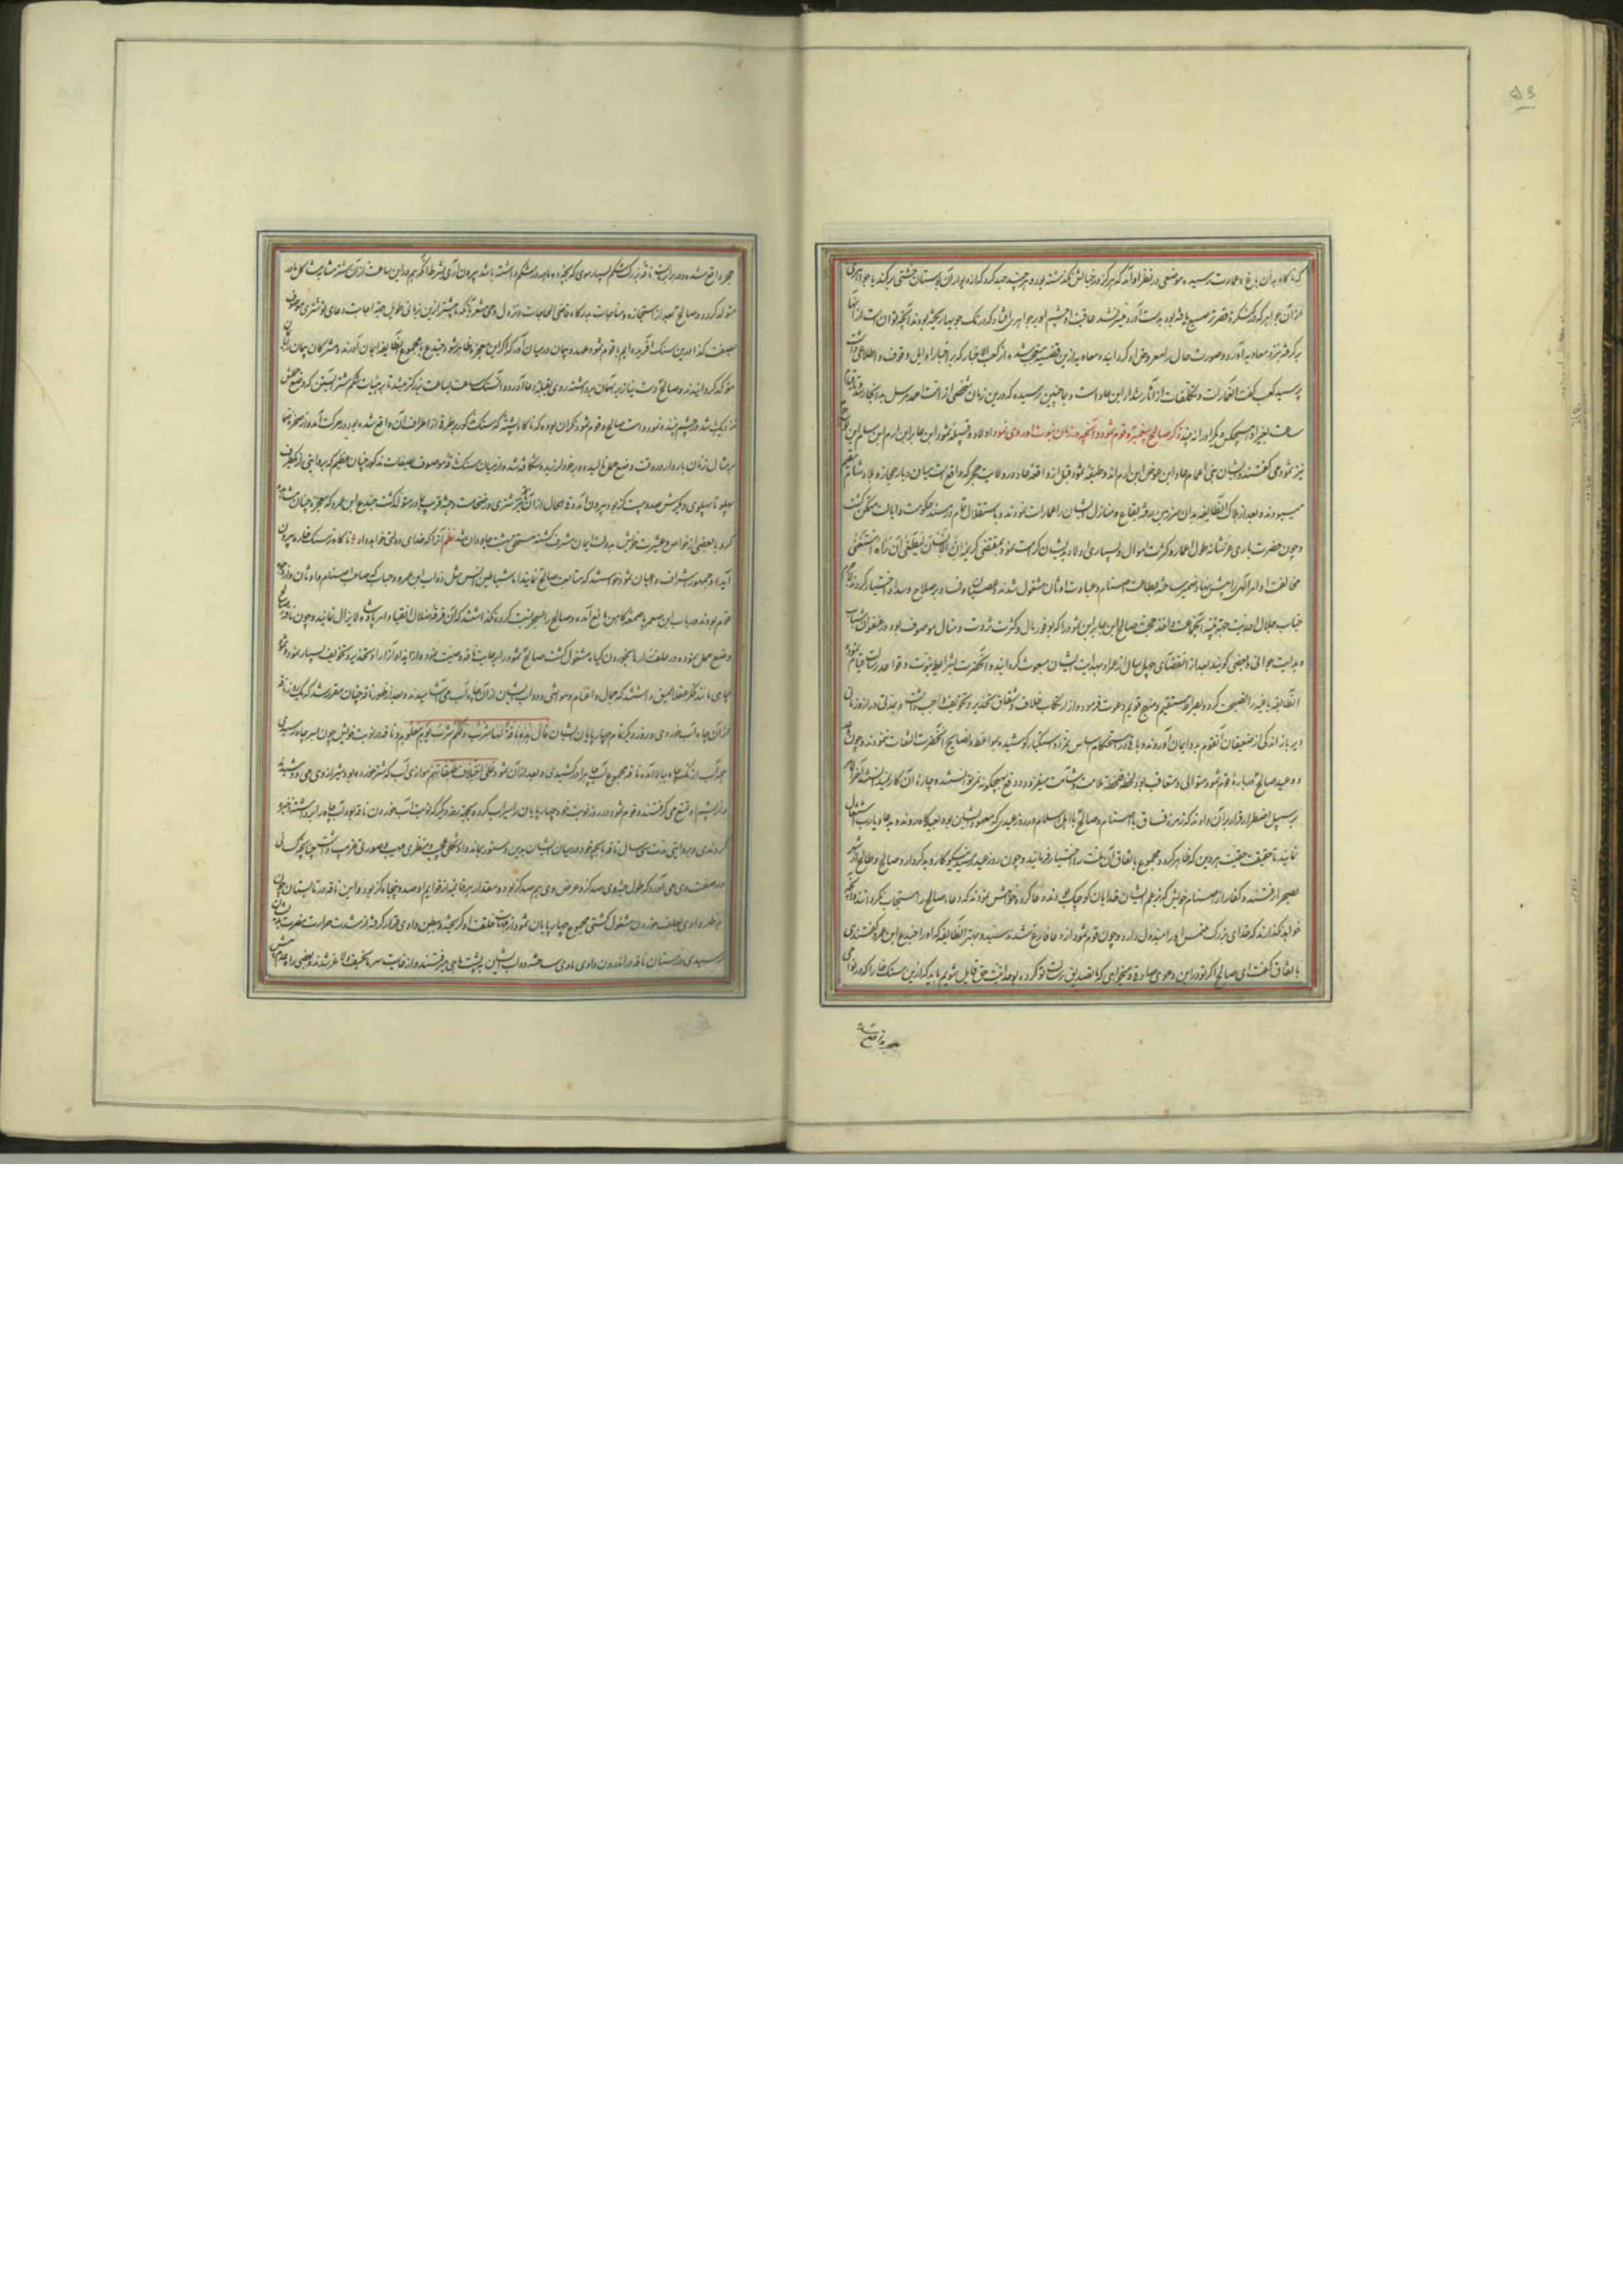 ۵۶
که ناگاه بدان باغ و عمارت رسیده موضعی در نظر او آمد که هرگز در خیالش نگذشته بود و هر چند جهد کرد که از دیوار آن بوستان خشتی برکند یا جواهری
از آن جواهر که در سنگریزه قصر ترصیع یافته بود بدست آورد میسر نشد عاقبت او چشم او بر جواهری افتاد که در تک جویها ریخته بودند آنچه توان است از آنها
برگرفته نزد معاویه آورد و صورت حال را معروض او گردانید و معاویه ازین قضیه متعجب شده از کعب الاخبار که بر اخبار اوایل وقوف و اطلاعی داشت
پرسید کعب گفت آن عمارات و تکلفات از آثار شداد ابن عاد است و بما چنین رسیده که درین زمان شخصی از امت احمد مرسل به آنجا رسد
ساعت بغیر او هیچکس دیگر او را نه بیند ذکر صالح پیغمبر و قوم ثمود و آنچه در زمان نبوت او روی نمود اولاد و قبیله ثمود ابن عابر ابن ارم ابن سام ابن
نیز ثمود می گفتند و ایشان بنی اعمام عاد ابن عوص ابن ارم اند و طبقه ثمود قبل از واقعه عاد در ولایت حجر که واقع است میان دیار حجاز و بلاد شام
میبودند و بعد از هلاک آن طایفه بدان سرزمین رفته بقاع و منازل ایشان را عمارات نمودند و باستقلال تمام در مسند حکومت و ایالت متمکن گشت
و چون حضرت باری عز شانه طول اعمار و کثرت اموال و بسیاری اولاد بدیشان کرامت نمود بمقتضی کریمه ان الانسان لیطغی ان رآه استغنی
مخالفت اوامر الهی را پیش نهاد ضمیر ساخته باطاعت اصنام و عبادت اوثان مشغول شدند و عصیان و فساد بر صلاح و سداد اختیار کردند
جناب جلال احدیت جهت تنبیه آنجماعت و اخذ حجت صالح ابن عابر ابن ثمود را که بوفور مال و کثرت ثروت و منال موصوف بود در عنفوان شباب
و بدایت جوانی و بعضی گویند بعد از انقضای چهل سال از عمر او بهدایت ایشان مبعوث گردانید و آنحضرت بشرایط نبوت و قواعد رسالت قیام نموده
آن طایفه باغیه را نصیحت کرد و بصراط مستقیم و منهج قویم دعوت فرمود و از ارتکاب خلاف و شقاق تحذیر و تخویف واجب داشت و بمدتی دراز و زمانی
دیر باز اندکی از ضعیفان آن قوم به وی ایمان آوردند و باقی در استحکام اساس تمرد و استکبار کوشیده بمواعظ و نصایح آنحضرت التفات ننمودند و چون
وعید صالح در باره قوم ثمود متوالی و متعاقب بود لحظه لحظه ملامت و شآمت میفزود و دفع هیچگونه نمی توانستند و چاره آن کار نمیدانستند آخر
بر سبیل اضطرار قرار بر آن دادند که زمره فساق با اصنام و صالح با اهل اسلام در روز عیدی که معهود ایشان بود بعیدگاه روند و بدعا و یارب اشتغال
نمایند تا حقیقت هر دین که ظاهر گردد مجموع باتفاق آن ملت را اختیار فرمایند و چون روز عید رسید نیکوکار و بدکردار و صالح و طالح
بصحرا رفتند و کفار از اصنام خویش که بزعم ایشان خدایان کوچک بودند دعا کردند و خواهش نمودند که دعاء صالح را استجاب نگردانند
خواهد گذارند که خدای بزرگ ملتمس او را مبذول دارد و چون قوم ثمود از دعا فارغ شدند سید و مهتر آن طایفه که او را جندع ابن عمرو گفتندی
باتفاق گفت ای صالح اگر تو در این دعوی صادقی و میخواهی که ما تصدیق رسالت تو کرده بوحدانیت حق قایل شویم باید که ازین سنگ خارا که در نواحی
حجر واقع شده
حجر واقع شده و در برابر ماست ناقه بزرگ شکم بسیار موی که بچه ده ماهه در شکم داشته باشد بیرون آری بشرط آنکه هم در این ساعت از آن شتر
متولد گردد و صالح بعد از استجازه و مناجات بدرگاه قاضی الحاجات و نزول وحی مشعر بآنکه ما پیشتر ازین زمانی طویل جهت اجابت دعای تو شتری موصوف
بصفت کذا درین سنگ آفریده ایم با قوم ثمود عهد و پیمان در میان آورد که اگر این معجزه ظاهر شود جندع با مجموع آن طایفه ایمان آورند و مشرکان پیمان
مؤکد گردانیدند و صالح دست نیاز به آسمان برداشته روی بقبله دعا آورد و آن سنگ ساعت بساعت بزرگتر میشد تا بر هیئات شکم شتر آبستن که وضع حملش
نزدیک باشد
بمثال زنان باردار در وقت وضع حمل نالیده و بر خود لرزیده و شکافته شد و از میان سنگ ناقه موصوف بصفات مذکور چنان عظیم که بروایتی از یکطرف
پهلو تا پهلوی دیگرش صد و بیست گز بود بیرون آمد و فی الحال از آن ناقه بچه شتری در ضخامت و جثه قریب بمادر متولد گشت جندع ابن عمرو که معجزه چنان مشاهده
کرد با بعضی از خواص و عشیرت خویش بدولت ایمان مشرف گشته مستحق بهشت جاودان شد نظم آنرا که خدای دولتی خواهد داد ناگاه ز سنگ خاره بیرون
آید و جمهور اشراف و اعیان ثمود خواستند که متابعت صالح نمایند اما شیاطین الانس مثل ذواب ابن عمرو و حباب که صاحب اصنام و اوثان
قوم بودند و رباب ابن صمعر با صمغر کاهن مانع آمده و صالح را بسحر نسبت کردند و نگذاشتند که آن فرقه ضلال انقیاد امر پادشاه لا یزال نمایند و چون ناقه
وضع حمل نموده در علف زارها بخوردن گیاه مشغول گشت صالح ثمود را برعایت ناقه وصیت نمود و از ایذا و آزار او تحذیر و تخویف بسیار نمود و ثمود
چاهی عمیق داشتند که جمال و اغنام و مواشی و دواب ایشان از آن چاه آب می آشامیدند و بعد از ظهور ناقه چنان مقرر شد که یک روز ناقه
از آن چاه آب خوردی و روز دیگر تمام چهارپایان ایشان قال هذه ناقة لها شرب و لکم شرب یوم معلوم و ناقه در نوبت خویش چون بسر چاه رسیدی
همه آب از تک چاه ببالا آمده ناقه مجموع آب چاه را درکشیدی و بعد از آن ثمود علی اختلاف طبقاتهم موازی آب که شتر خورده بود شیر از وی می دوشیدند
و از پشم او منتفع می گرفتند و قوم ثمود در روز نوبت خود چهارپایان را سیراب کرده بجهة روز دیگر که نوبت آب خوردن ناقه بود آب چاه را برداشته ذخیره
کردندی و بروایتی مدت سی سال ناقه با بچه خود در میان ایشان بدین دستور بماند و او شکلی عجیب و منظری مهیب و صورتی غریب داشت چنانچه
در صفت وی می آورد که طول جثه وی صد گز و عرض وی هم صد گز بود و مقدار هر قایمه از قوایم او صد و پنجاه گز بود و این ناقه در تابستان چون
بر ظهر وادی بعلف خوردن مشغول گشتی مجموع چهارپایان ثمود از مهابت خلقت او گریخته و ببطن وادی قرار گرفته از شدت حرارت مضرت
رسیدی و زمستان ناقه در اندرون وادی ماوی ساخته دواب ایشان به پشت ها می برفتند و از غایت سرما